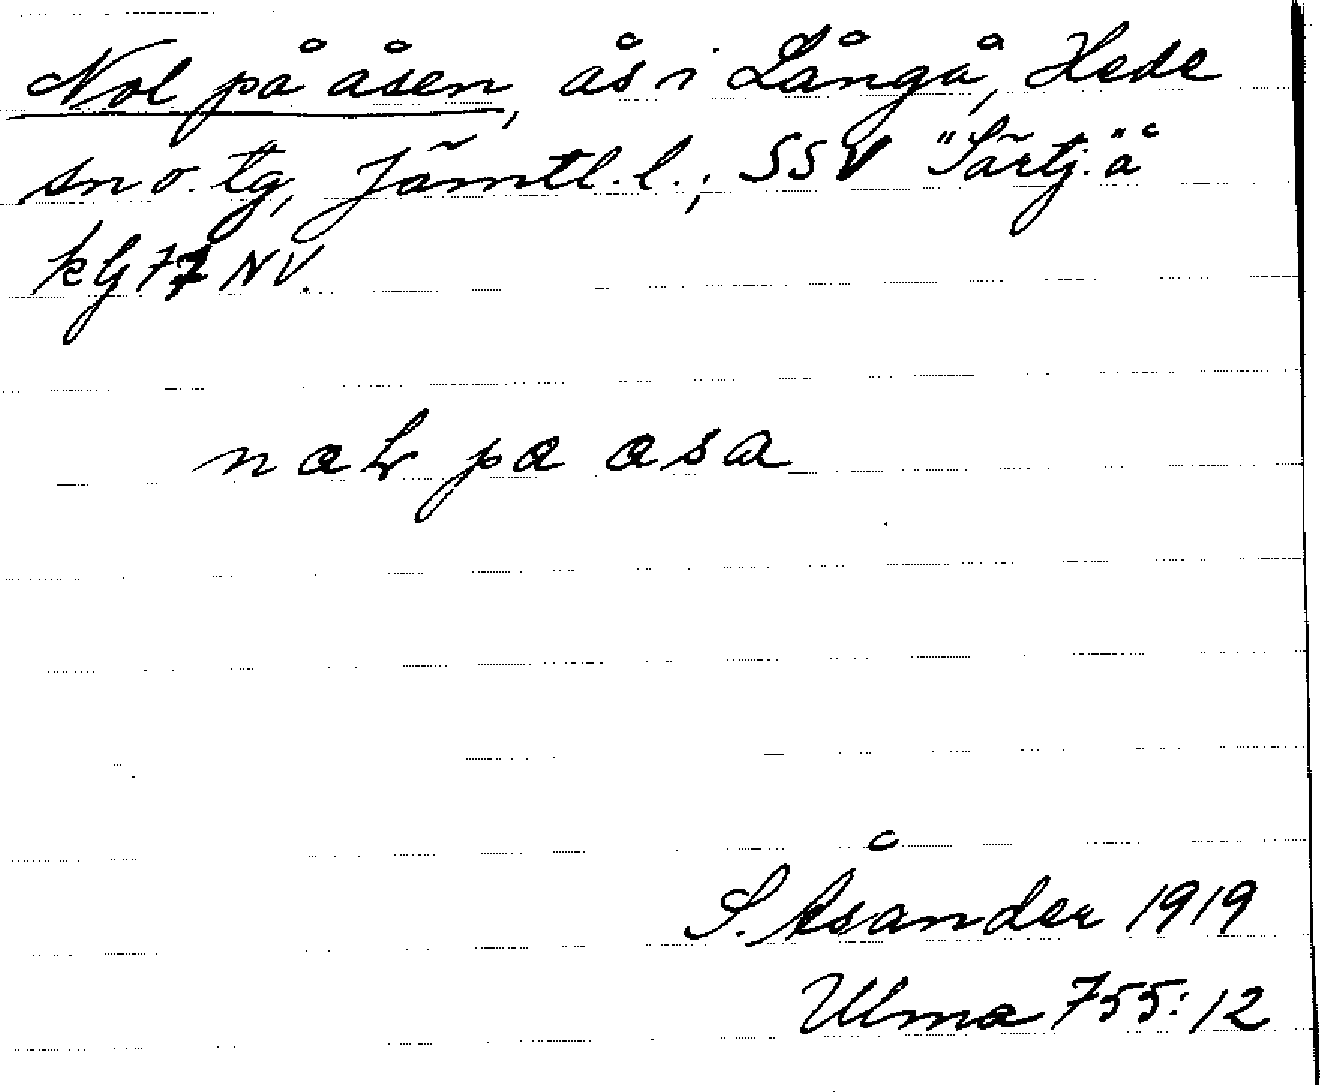 Nol på åsen, ås i Långå, Hede
sn o. tg, Jämtl. l.; SSV "Särtj.å"
kbl 77 NV.
nаlr pa asa
S. Åsander 1919
Ulma 755:12